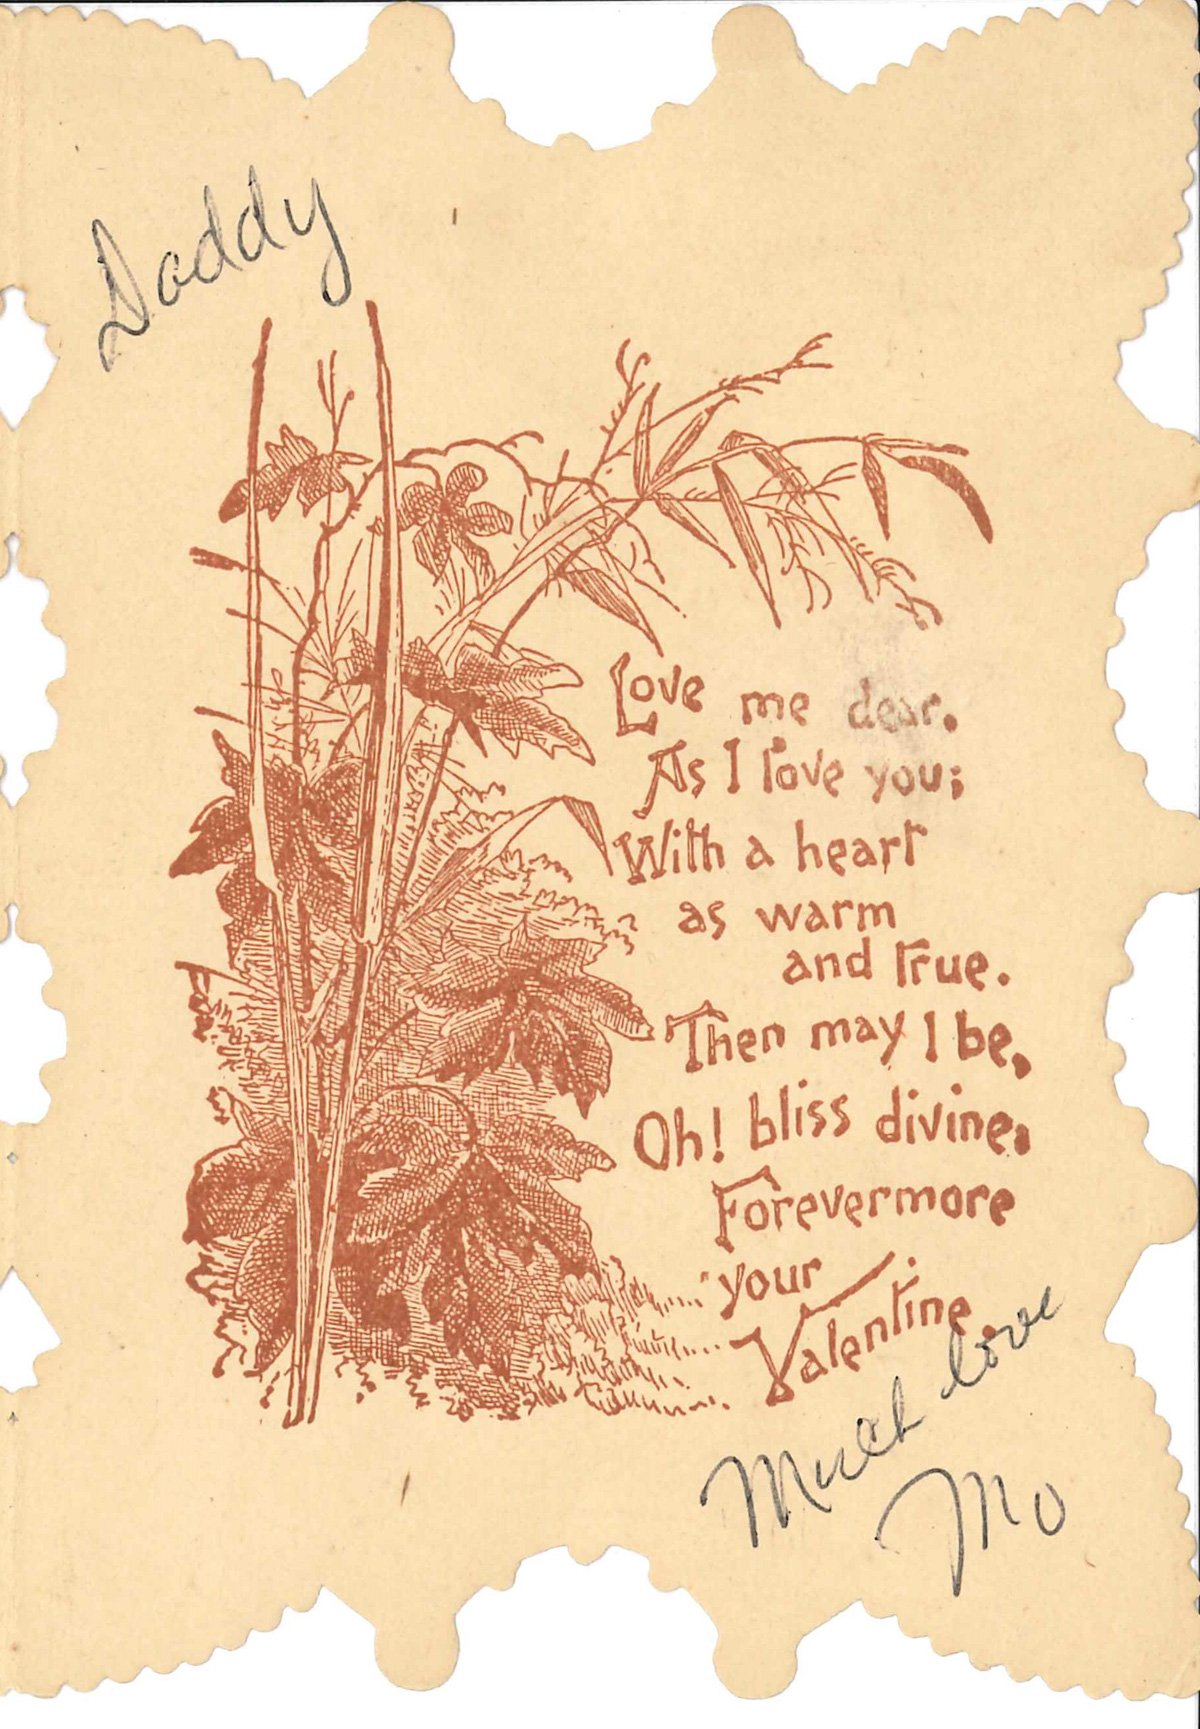 Daddy
Love me dear,
As I love you;
With a heart
as warm
and true.
Then may I be,
Oh! bliss divine,
Forevermore
your
Valentine.
Much love
Mo